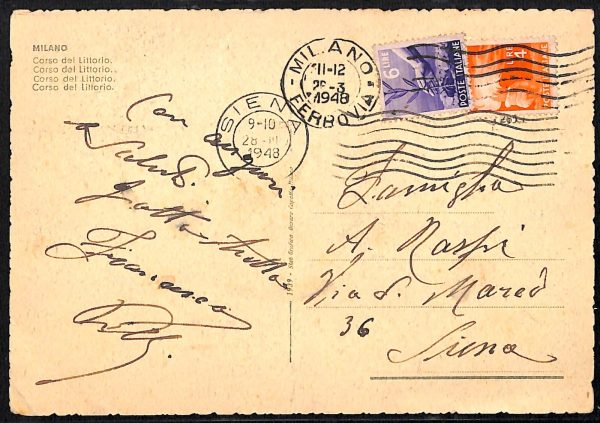 MILANO
Corso del Littorio.
Corso del Littorio.
Corso del Littorio.
Corso del Littorio.
MILANO
11-12
26-3
1948
FERROVIA
SIENA
9-10
28
1948
6 LIRE
POSTE ITALIANE
LIRE 4
POSTE ITALIANE
Con auguri
e saluti
Famiglia
A. Raspi
Via d.
36
Siena
1939